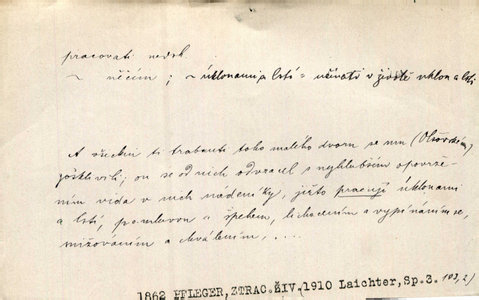 pracovati nedok.
~ něčím; ~ úklonami a lstí = užívati v životě úklon a lsti
A všickni ti trabanté toho malého dvora se mu (Olšovském)
pošklebili; on se od nich odvracel s nejhlubším opovrže-
ním vida v nich nádeníky, jižto pracují úklonami
a lstí, pomluvou a špehem, lichocením a vypínáním se,
snižováním a chválením, ...
1862 PFLEGER, ZTRAC.ŽIV.1910 Laichter, Sp.3. 103,2)